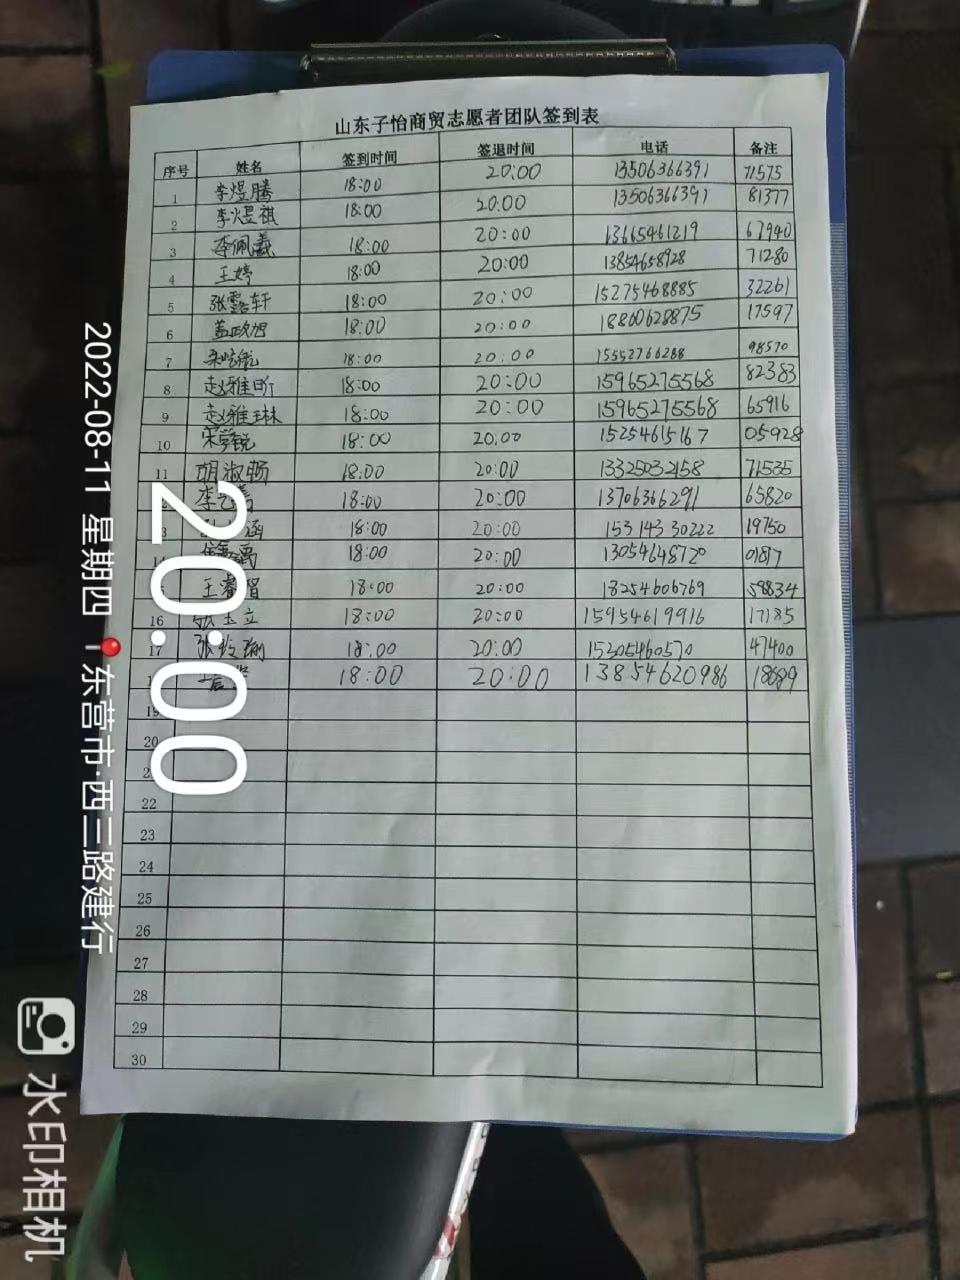 山东子怡商贸志愿者团队签到表
序号 姓名 签到时间 签退时间 电话 备注
1 李煜腾 18:00 20:00 13506366391 71575
2 李煜祺 18:00 20:00 13506366391 81377
3 李佩羲 18:00 20:00 13665461219 67940
4 王婷 18:00 20:00 13854658928 71280
5 张露轩 18:00 20:00 15275468885 32261
6 盖政旭 18:00 20:00 18860628875 17597
7 18:00 20:00 15552766288 98570
8 赵雅昕 18:00 20:00 15965275568 82383
9 赵雅琳 18:00 20:00 15965275568 65916
10 宋学锐 18:00 20:00 15254615167 05928
11 胡淑畅 18:00 20:00 13325032158 71535
李 18:00 20:00 13706366291 65820
涵 18:00 20:00 15314330222 19750
14 18:00 20:00 13054648720 01817
王睿智 18:00 20:00 18254606769 58834
16 张玉立 18:00 20:00 15954619916 17185
17 张 18:00 20:00 15305460570 47400
18:00 20:00 13854620986
19
20
22
23
24
25
26
27
28
29
30
20:00
2022-08-11 星期四
东营市·西二路建行
水印相机